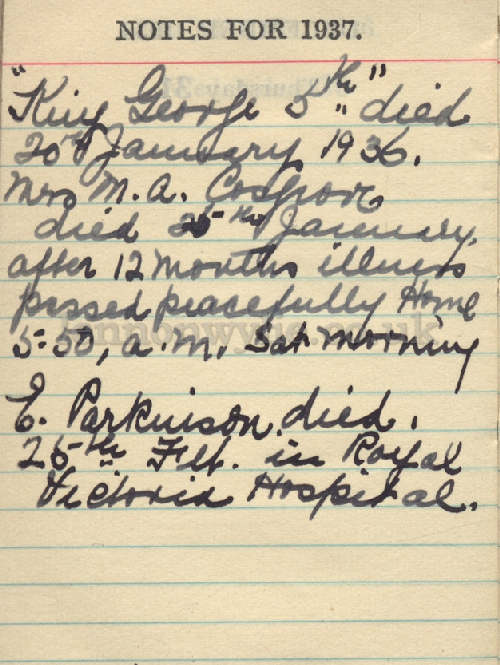 NOTES FOR 1937.
"King George 5th" died
20th January 1936.
Mrs M. A. Cosgrove
died 25th January,
after 12 months illness
passed peacefully Home
5-50, a.m. Sat morning
E. Parkinson died.
25th Feb. in Royal
Victoria Hospital.